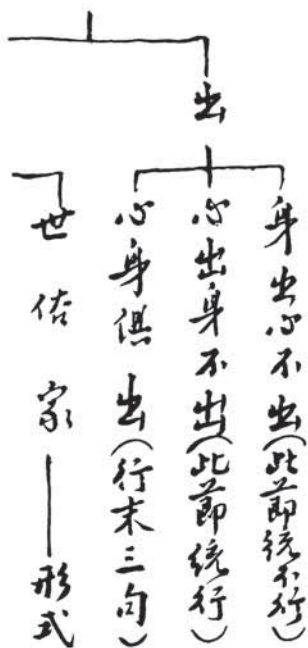 出
身出心不出(此節統不行)
心出身不出(此節統行)
心身俱出(行末三句)
世俗家——形式